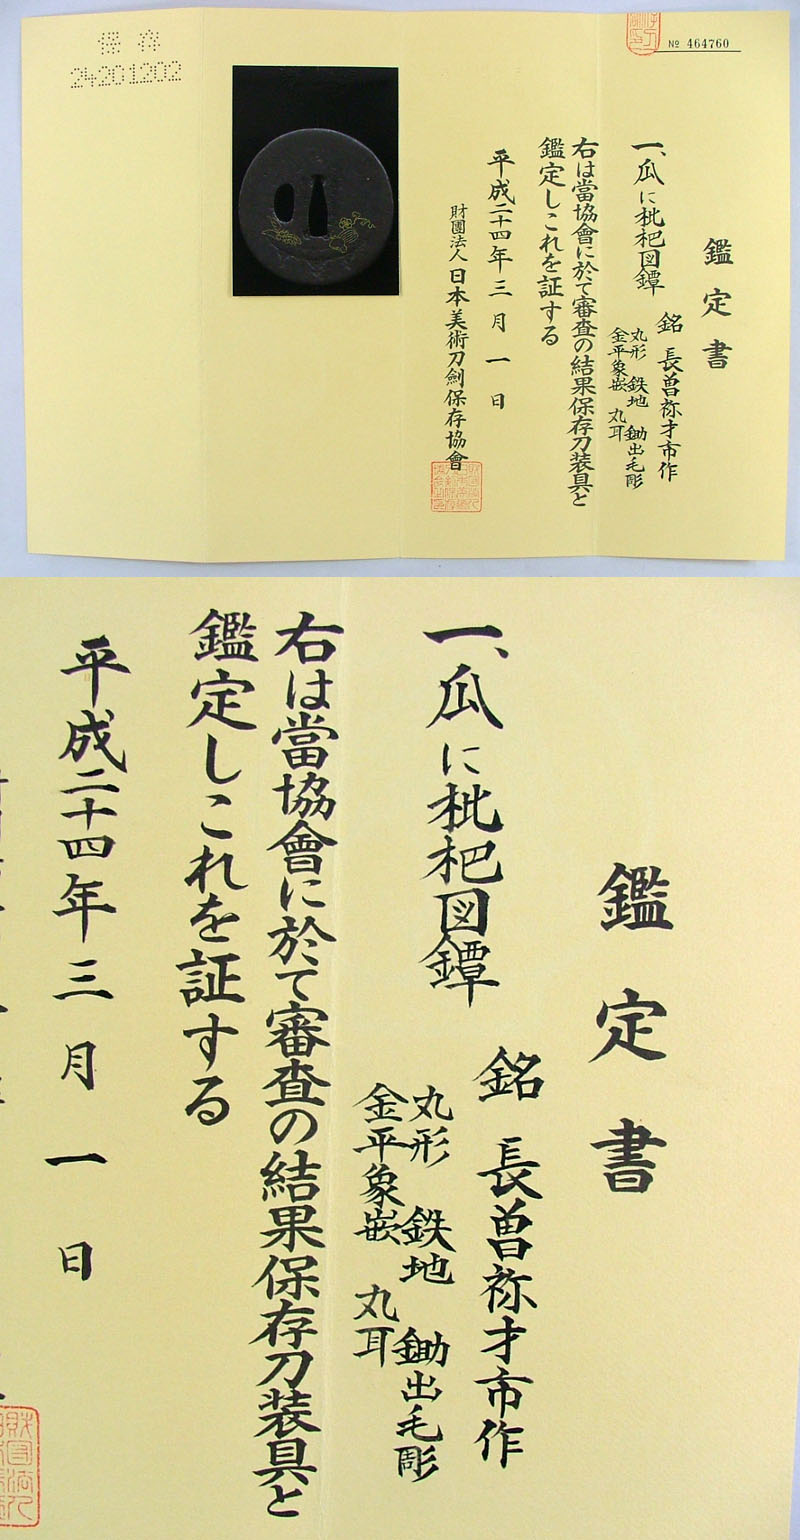 保存
24201202
№ 464760
鑑定書
一、瓜に枇杷図鐔
銘 長曽祢才市作
丸形 鉄地 鋤出毛彫
金平象嵌 丸耳
右は當協會に於て審査の結果保存刀装具と
鑑定しこれを証する
平成二十四年三月一日
財團法人 日本美術刀劍保存協會
鑑定書
一、瓜に枇杷図鐔
銘 長曽祢才市作
丸形 鉄地 鋤出毛彫
金平象嵌 丸耳
右は當協會に於て審査の結果保存刀装具と
鑑定しこれを証する
平成二十四年三月一日